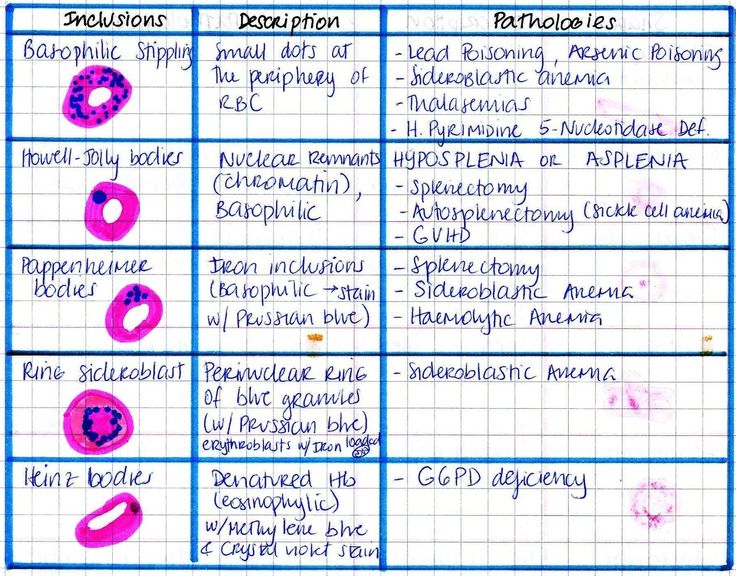 Inclusions Description Pathologies
Basophilic Stippling
Small dots at
the periphery of
RBC
- Lead Poisoning, Arsenic Poisoning
- Sideroblastic anemia
- Thalasemias
- H. Pyrimidine 5-Nucleotidase Def.
Howell-Jolly bodies
Nuclear Remnants
(chromatin),
Basophilic
HYPOSPLENIA OR ASPLENIA
- Splenectomy
- Autosplenectomy (sickle cell anemia)
- GVHD
Pappenheimer
bodies
Iron inclusions
(Basophilic → stain
w/ Prussian blue)
- Splenectomy
- Sideroblastic Anemia
- Haemolytic Anemia
Ring sideroblast
Perinuclear Ring
of blue granules
(w/ Prussian blue)
erythroblasts w/ Iron loaded
- Sideroblastic Anemia
Heinz bodies
Denatured Hb
(eosinophylic)
w/ Methylene blue
& Crystal violet stain
- G6PD deficiency